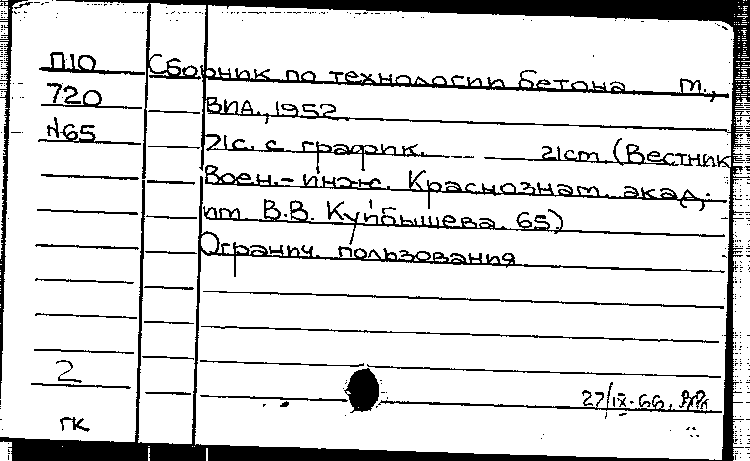 П10 Сборник по технологии бетона. т.,
720 ВИА., 1952.
N65 71с. с график. 21cm. (Вестник
Воен.-инж. Краснознам. акад.;
им. В.В. Куйбышева. 65)
Огранич. пользования
2
27/IX-66.
гк